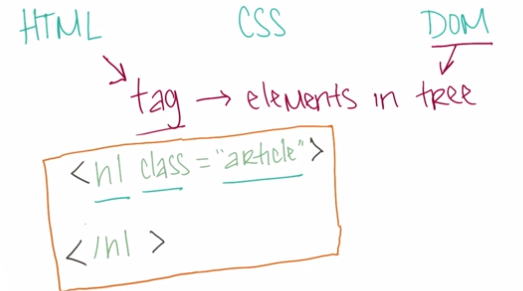 HTML CSS DOM
tag → elements in tree
<h1 class = "article">
</h1 >